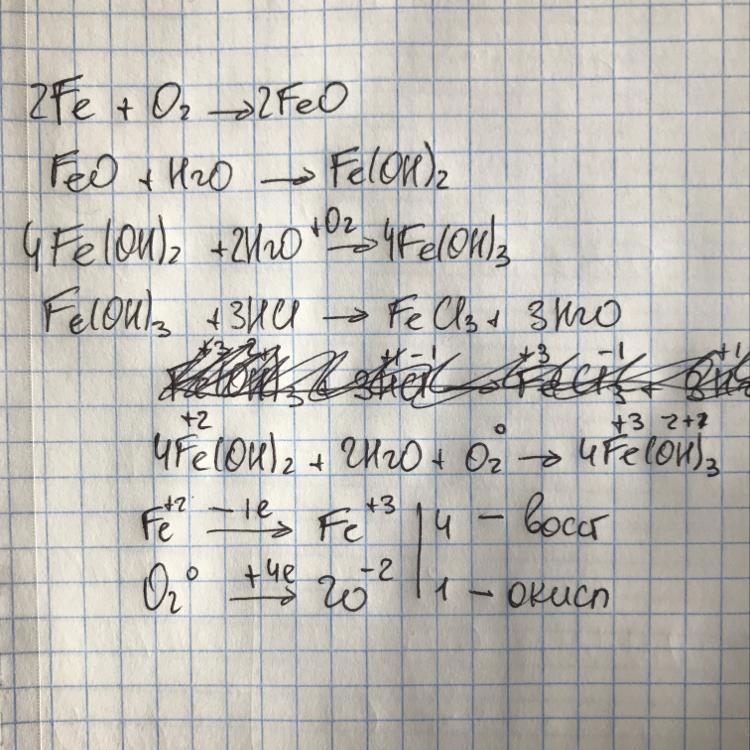 2Fe + O₂ → 2FeO
FeO + H₂O → Fe(OH)₂
4Fe(OH)₂ + 2H₂O +O₂ → 4Fe(OH)₃
Fe(OH)₃ + 3HCl → FeCl₃ + 3H₂O
+2 0 +3 -2+1
4Fe(OH)₂ + 2H₂O + O₂ → 4Fe(OH)₃
Fe⁺² -1e → Fe⁺³ | 4 - восст
O₂⁰ +4e → 2O⁻² | 1 - окисл